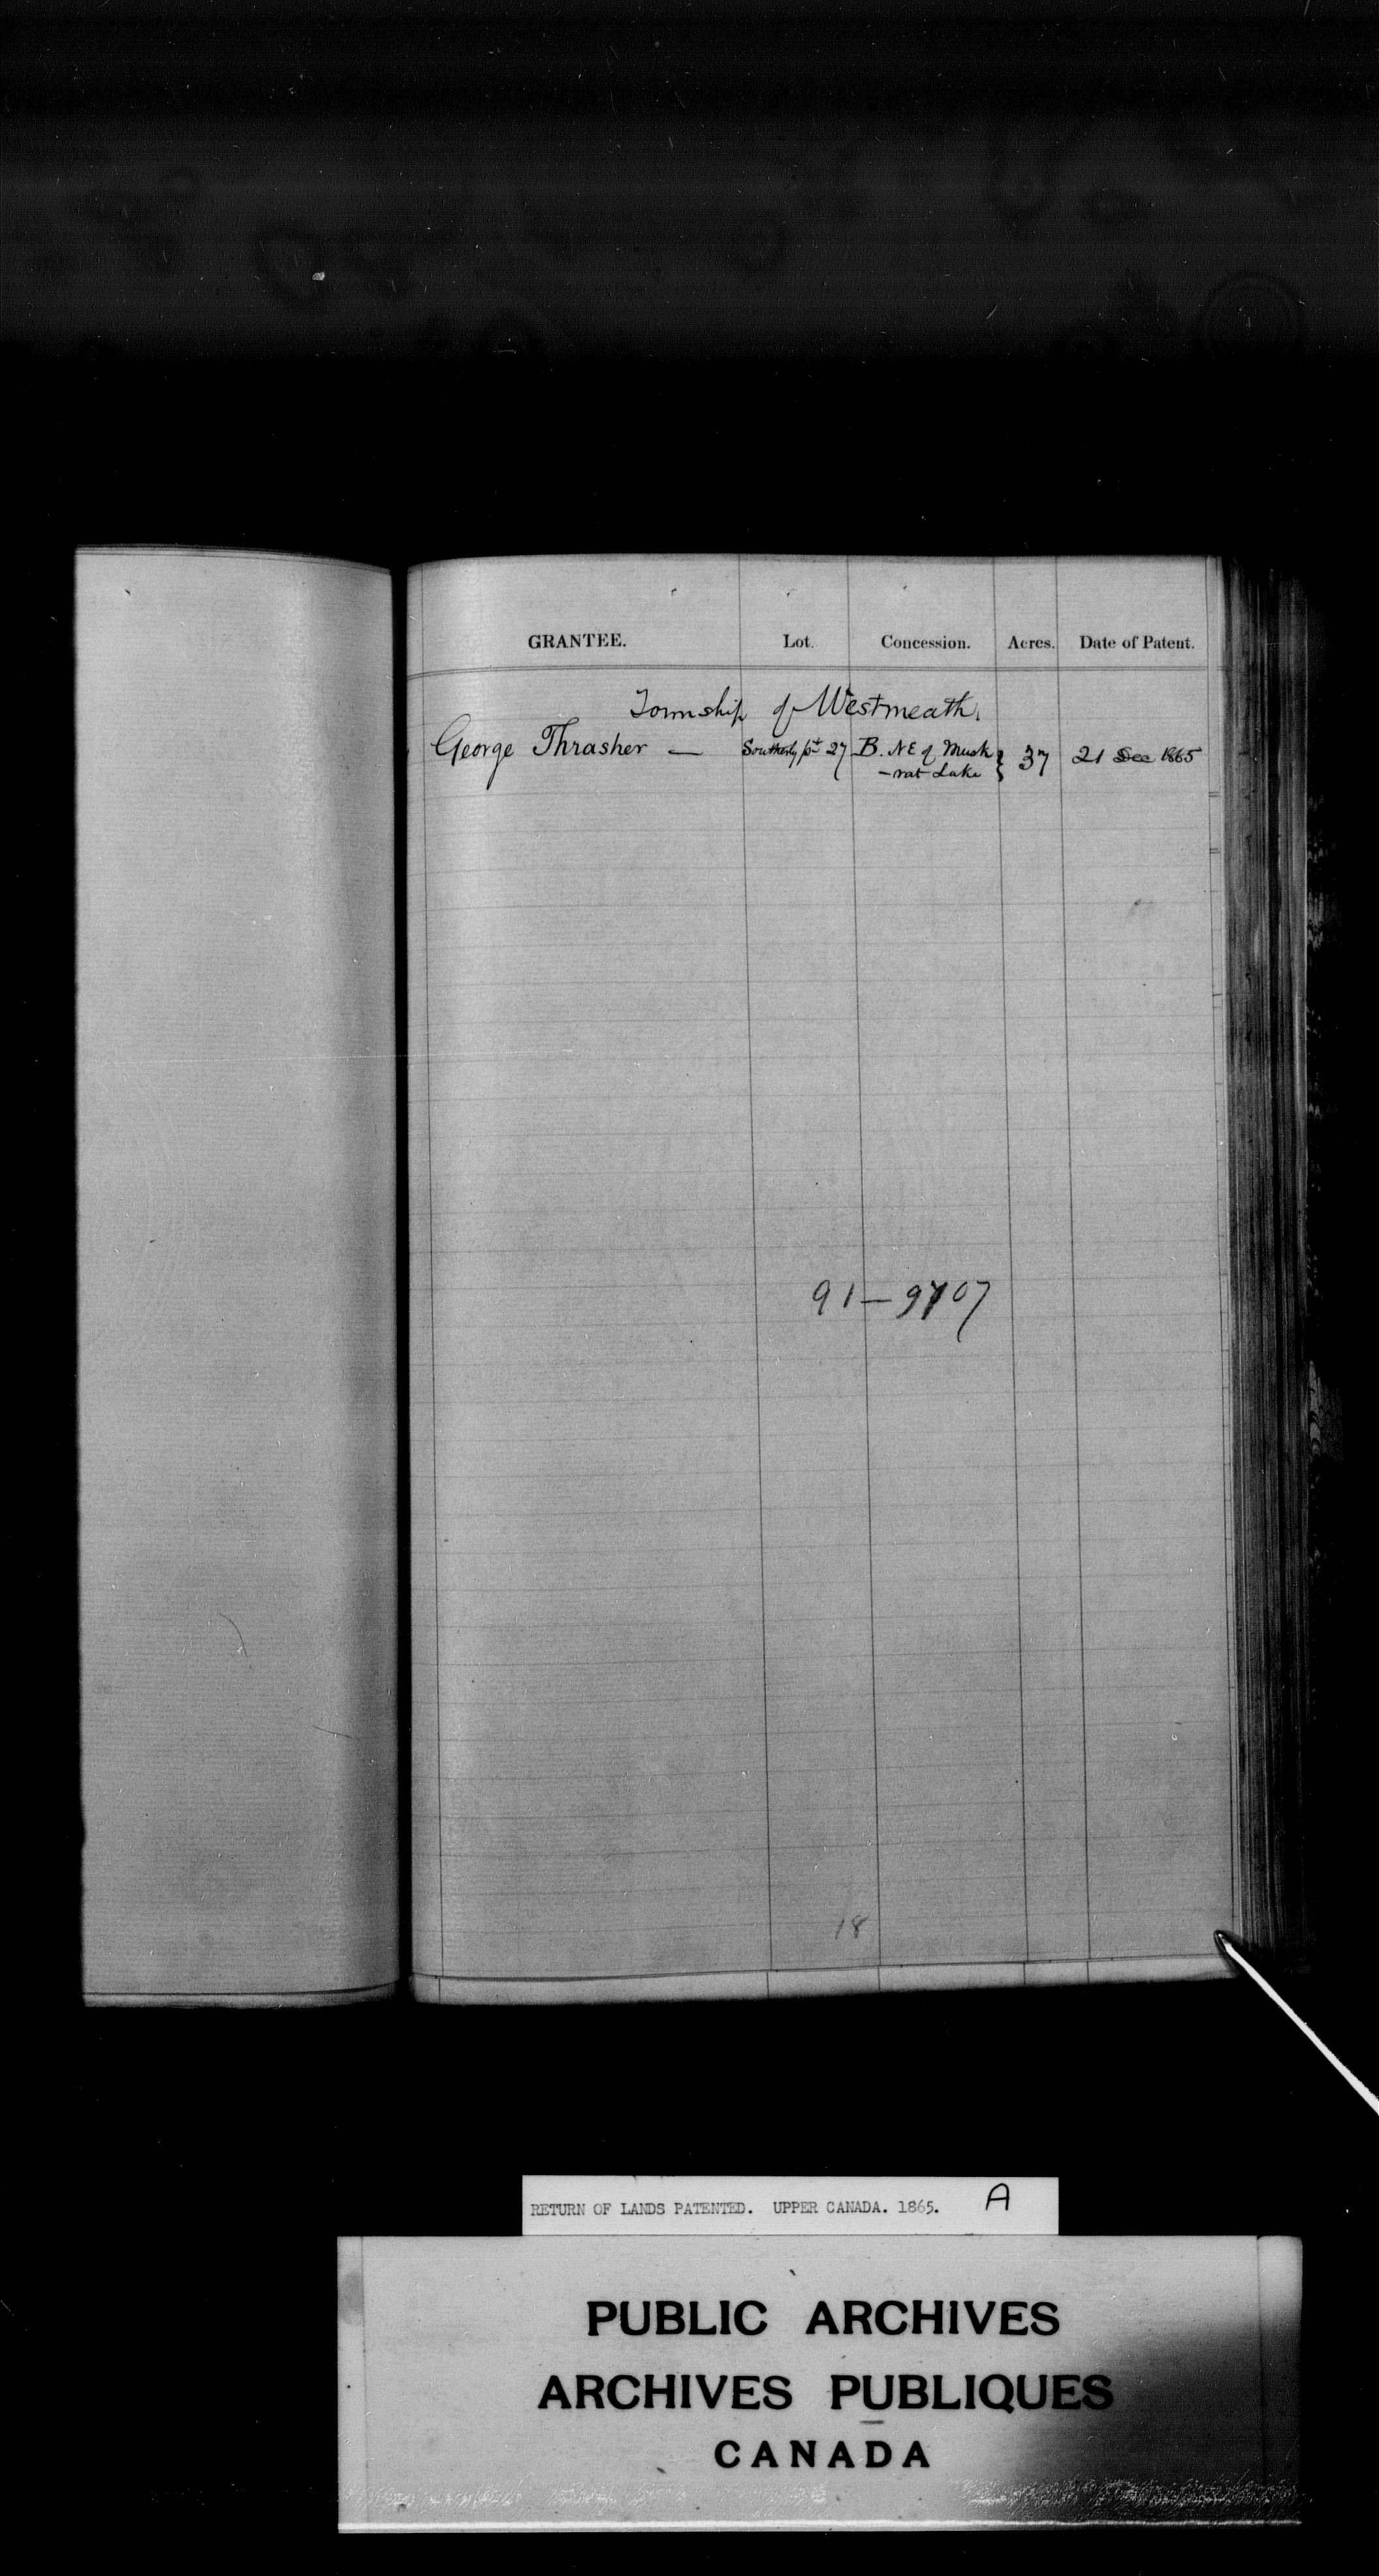 GRANTEE. Lot. Concession. Acres. Date of Patent.
Township of Westmeath.
George Thrasher — Southerly pt 27 B. NE of Musk } 37 21 Dec 1865
-rat Lake
91—9707
18
RETURN OF LANDS PATENTED. UPPER CANADA. 1865. A
PUBLIC ARCHIVES
ARCHIVES PUBLIQUES
CANADA